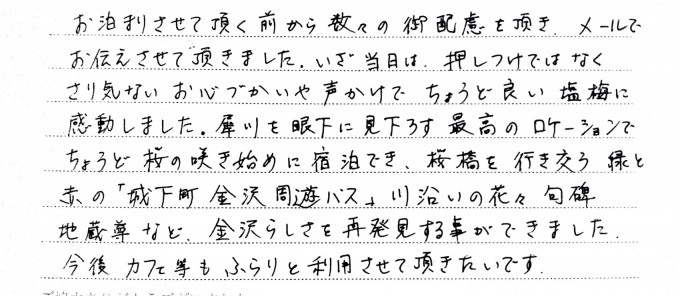 お泊まりさせて頂く前から数々の御配慮を頂き、メールで
お伝えさせて頂きました。いざ当日は、押しつけではなく
さり気ないお心づかいや声かけでちょうど良い塩梅に
感動しました。犀川を眼下に見下ろす最高のロケーションで
ちょうど桜の咲き始めに宿泊でき、桜橋を行き交う緑と
赤の「城下町金沢周遊バス」川沿いの花々句碑
地蔵尊など、金沢らしさを再発見する事ができました。
今後カフェ等もふらりと利用させて頂きたいです。